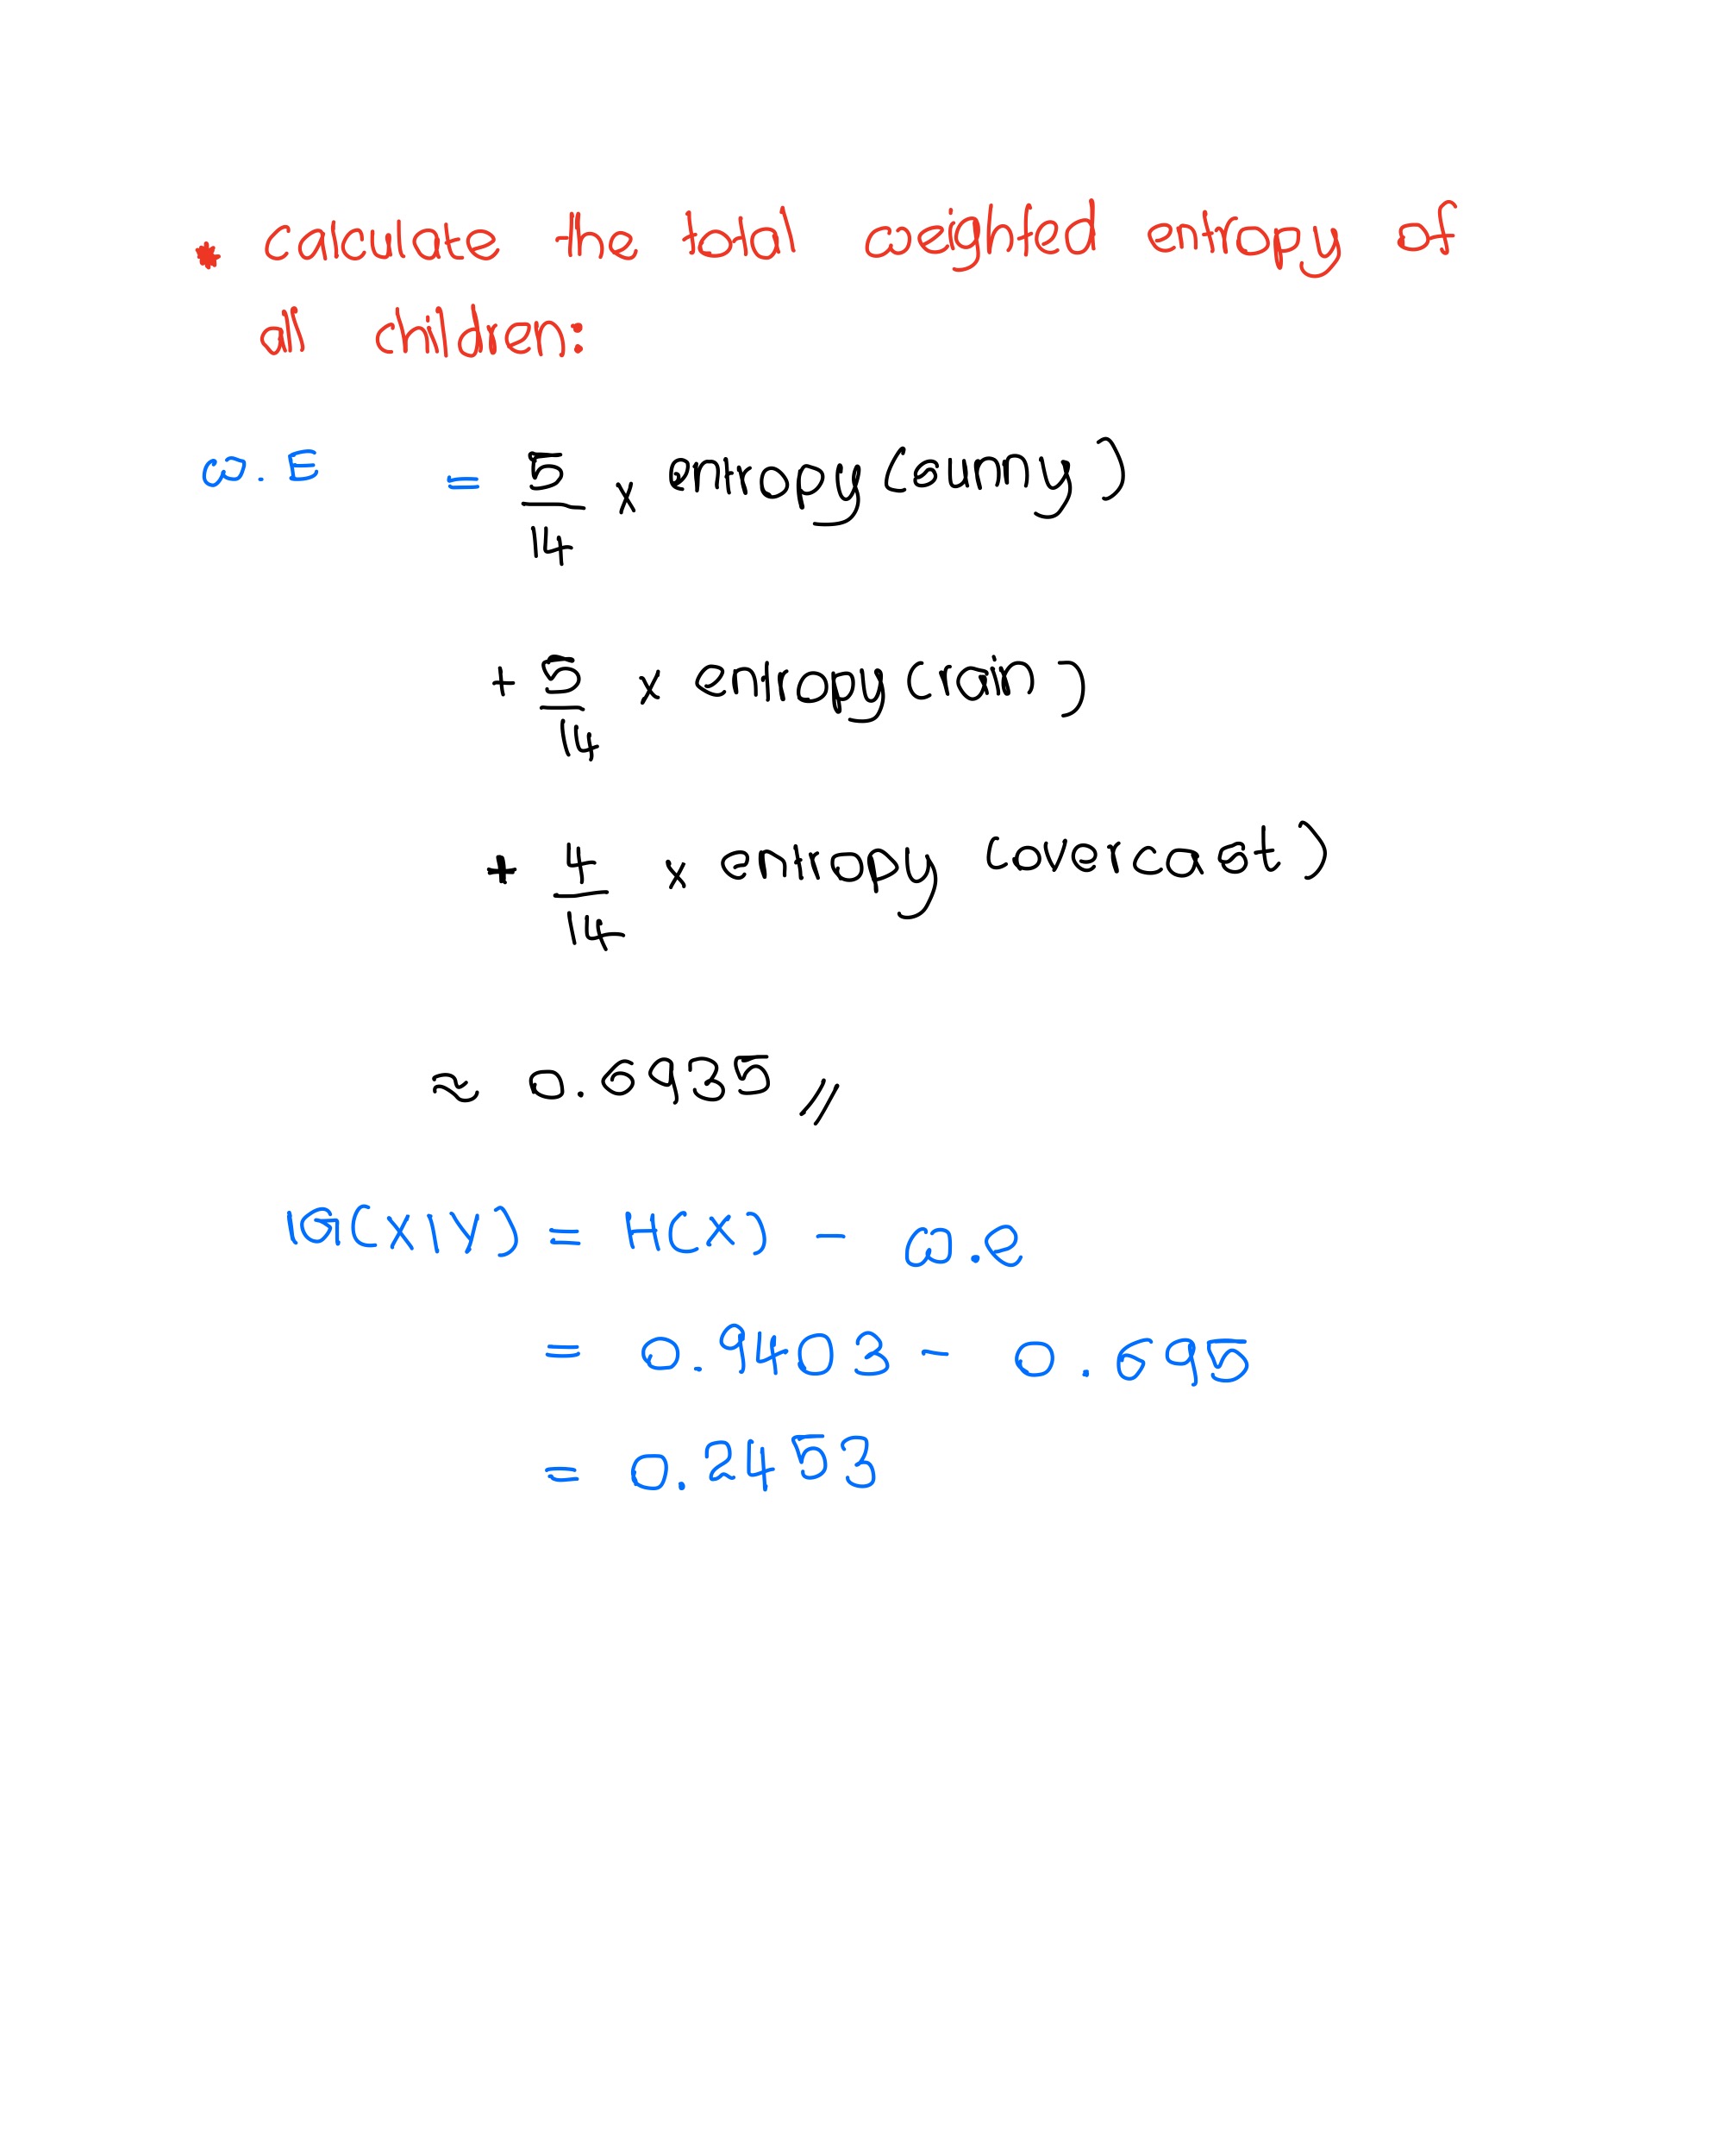 * calculate the total weighted entropy of
all children:
W.E = 5/14 x entropy (sunny)
+ 5/14 x entropy (rain)
+ 4/14 x entropy (overcast)
≈ 0.6935 //
IG(X|Y) = H(X) - w.e
= 0.9403 - 0.695
= 0.2453